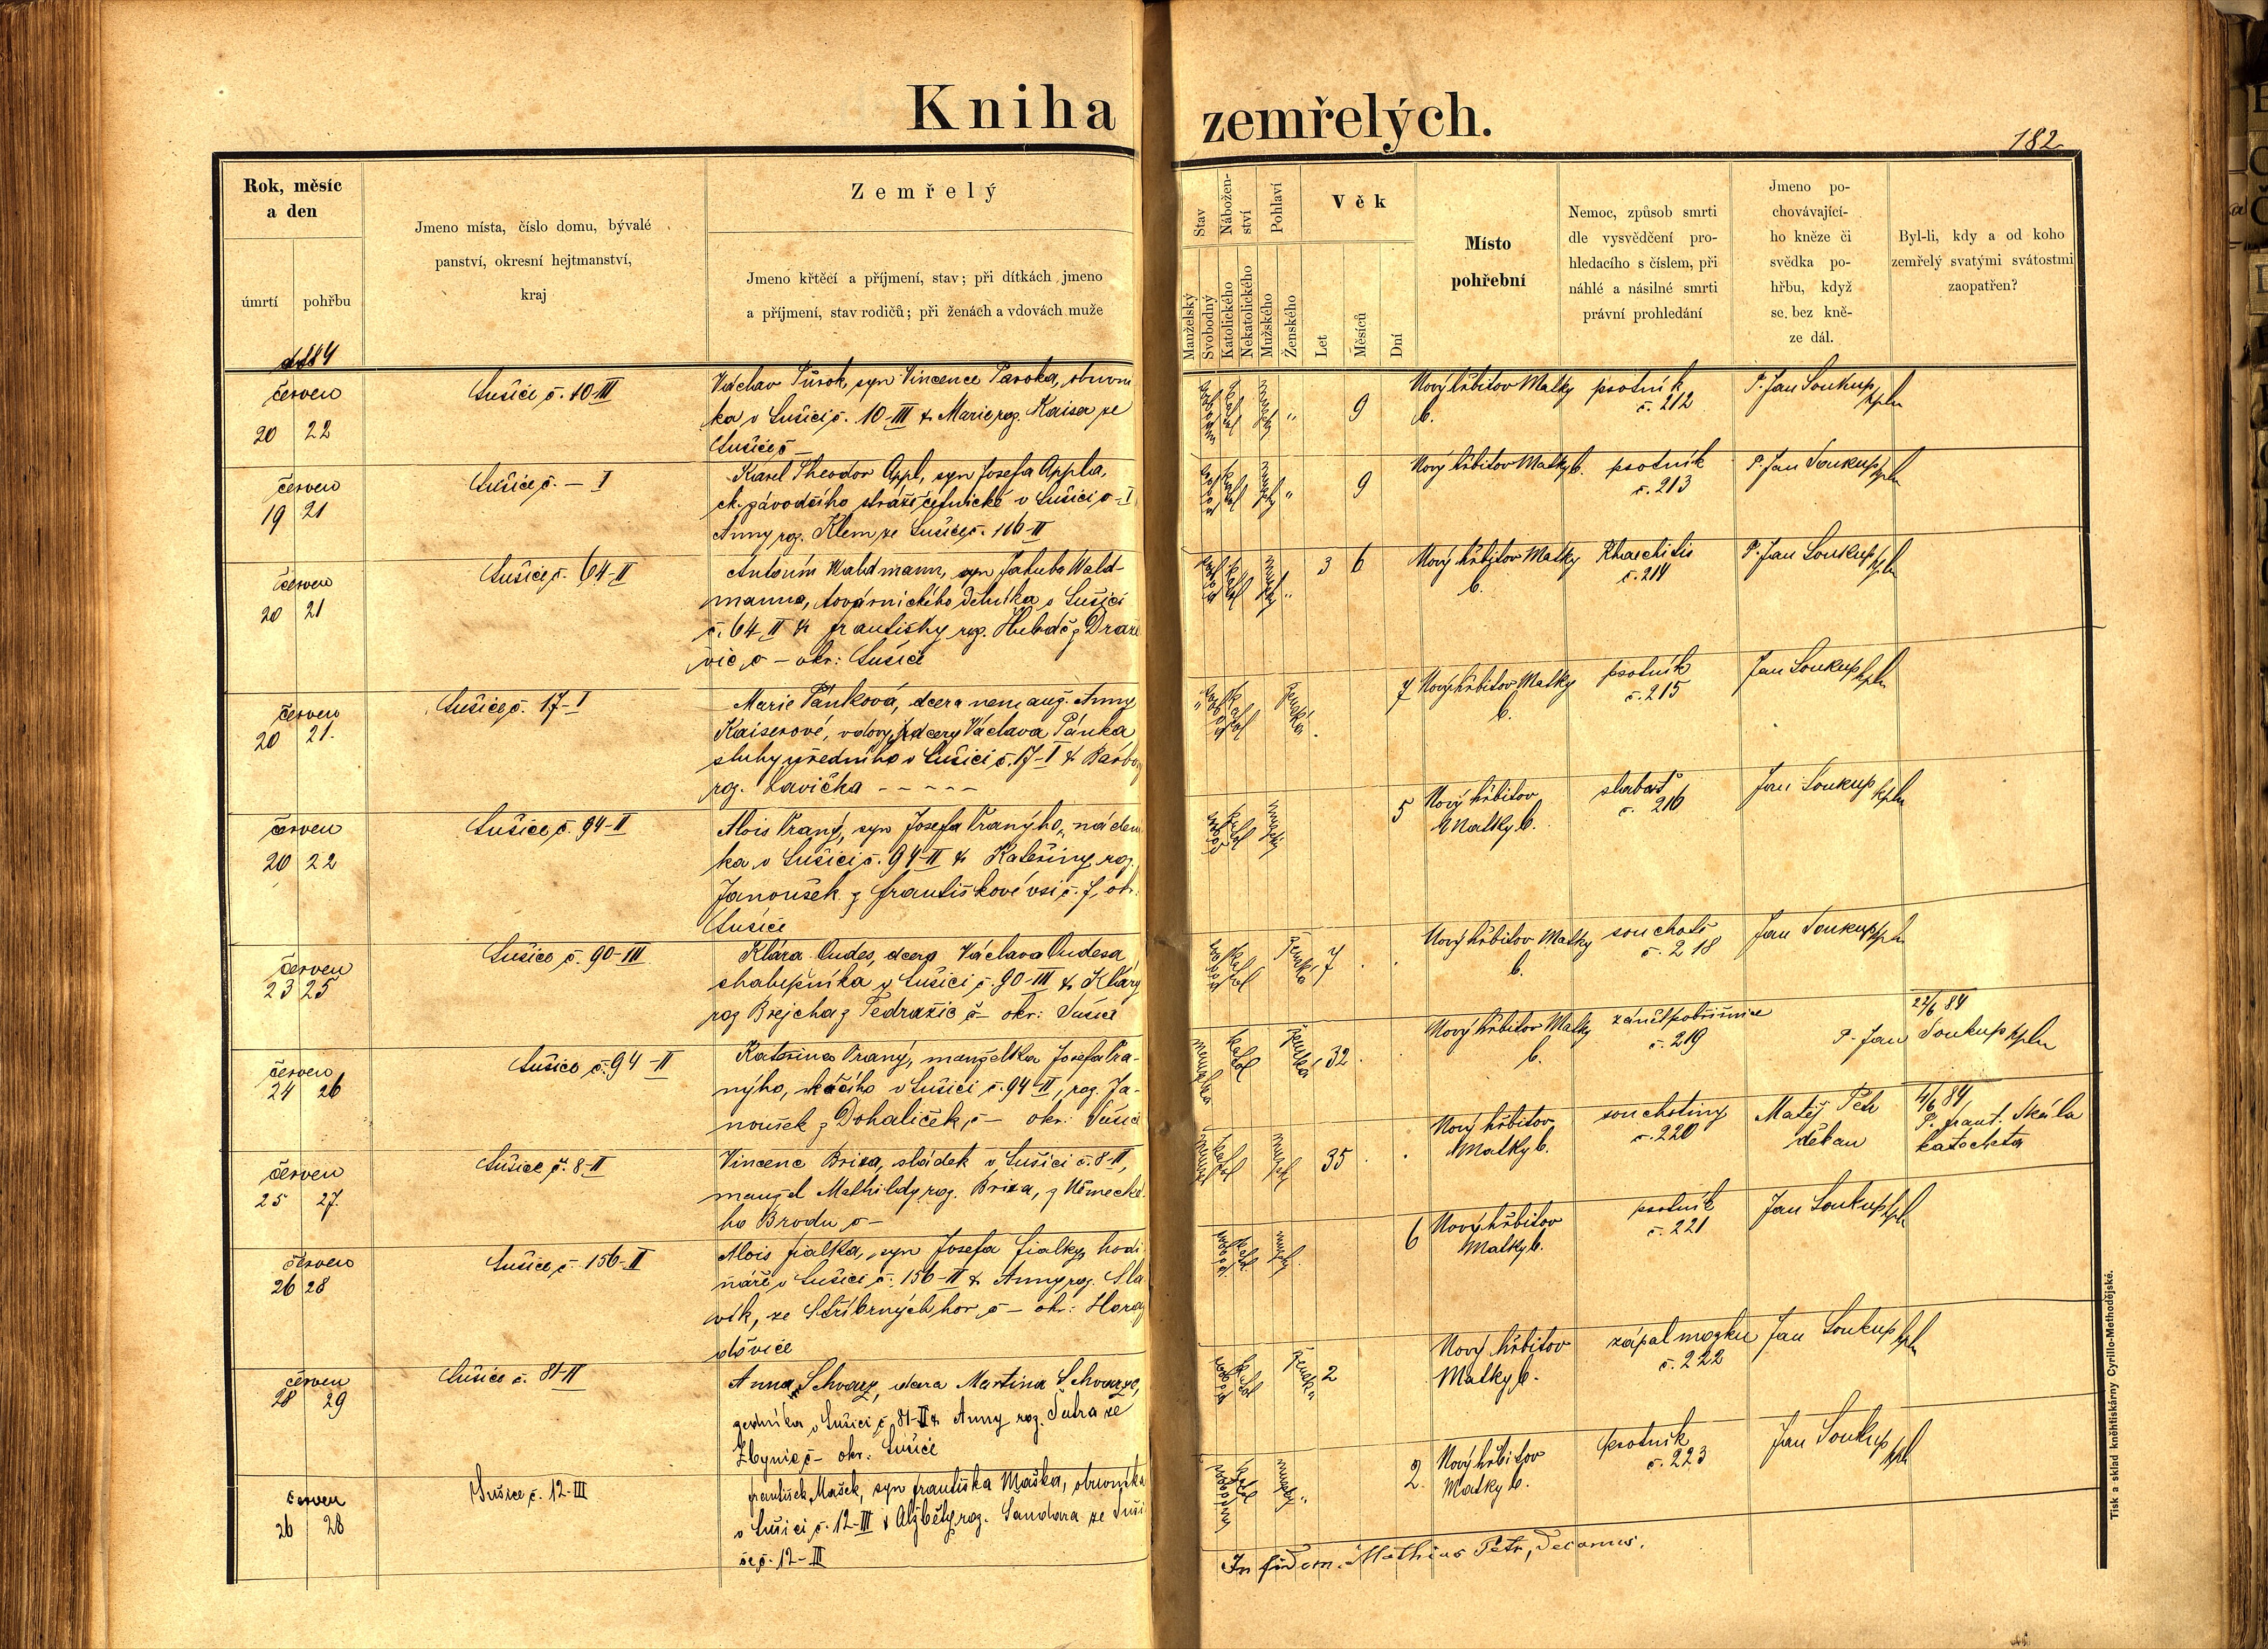 Kniha zemřelých.
182
Rok, měsíc
a den
úmrtí
pohřbu
Jmeno místa, číslo domu, bývalé
panství, okresní hejtmanství,
kraj
Zemřelý
Jmeno křtěcí a příjmení, stav; při dítkách jmeno
a příjmení, stav rodičů; při ženách a vdovách muže
Stav
Manželský
Svobodný
Nábožen-
ství
Katolického
Nekatolického
Pohlaví
Mužského
Ženského
Věk
Let
Měsíců
Dní
Místo
pohřební
Nemoc, způsob smrti
dle vysvědčení pro-
hledacího s číslem, při
náhlé a násilné smrti
právní prohledání
Jmeno po-
chovávající-
ho kněze či
svědka po-
hřbu, když
se bez kně-
ze dál.
Byl-li, kdy a od koho
zemřelý svatými svátostmi
zaopatřen?
červen
20 22
Sušici č. 10-III
Václav Tůrok, syn Vincence Taroka, obuvní
ka v Sušici č. 10-III & Marie roz. Kaiser ze
Sušice č –
9
Nový hřbitov Matky
b.
psotník
č. 212
P. Jan Soukup kpln
červen
19 21
Sušice č. – I
Karel Theodor Appl, syn Josefa Appla,
ck. závodčího stráže četnické v Sušici č – I
Anny roz. Klem ze Sušice č. 116-II
9
Nový hřbitov Matky b.
psotník
č. 213
P. Jan Soukup kpln
červen
20 21
Sušice č. 64-II
Antonín Waldmann, syn Jakuba Wald-
manna, továrnického dělníka v Sušici
č. 64-II & Františky roz. Hubáč z Draže
vic č – okr: Sušice
3 6
Nový hřbitov Matky
b.
Rhachitis
č. 214
P. Jan Soukup kpln
červen
20 21.
Sušice č. 17-I
Marie Pánková, dcera nemanž. Anny
Kaiserové, vdovy, dcery Václava Pánka
sluhy úředního v Sušici č. 17-I & Barbory
roz. Lavička – – – – –
7
Nový hřbitov Matky
b.
psotník
č. 215
Jan Soukup kpln
červen
20 22
Sušice č. 94-II
Alois Praný, syn Josefa Pranýho, náden
ka v Sušici č. 94-II & Kateřiny roz.
Janoušek z Františkové vsi č. 7, okr.
Sušice
5
Nový hřbitov
Matky b.
slabost
č. 216
Jan Soukup kpln
červen
23 25
Sušice č. 90-III
Klára Oudes, dcera Václava Oudesa
chalupníka v Sušici č. 90-III & Kláry
roz Brejcha z Tedražic č – okr: Sušice
7
Nový hřbitov Matky
b.
souchotě
č. 218
Jan Soukup kpln
červen
24 26
Sušice č. 94-II
Kateřina Praný, manželka Josefa Pra-
nýho, v Sušici č. 94-II, roz. Ja-
noušek z Dohaliček, č – okr: Sušice
32
Nový hřbitov Matky
b.
zánět pobřišnice
č. 219
22/6 84
P. Jan Soukup kpln
červen
25 27.
Sušice č. 8-II
Vincenc Brixa, sládek v Sušici č. 8-II,
manžel Mathildy roz. Brixa, z Německé
ho Brodu č –
35
Nový hřbitov
Matky b.
souchotiny
č. 220
Matěj Petr
děkan
4/6 84
P. Frant. Skála
katecheta
červen
26 28
Sušice č. 156-II
Alois Fialka, syn Josefa Fialky, hodi
náře v Sušici č. 156-II & Anny roz. Sla
vík, ze Stříbrných hor č – okr: Horaž
dóvice
6
Nový hřbitov
Matky b.
psotník
č. 221
Jan Soukup kpln
červen
28 29
Sušice č. 81-II
Anna Schwarz, dcera Martina Schwarze,
zedníka v Sušici č. 81-II & Anny roz. Šutra ze
Zbynic č – okr: Sušice
2
Nový hřbitov
Matky b.
zápal mozku
č. 222
Jan Soukup kpln
červen
26 28
Sušice č. 12-III
František Mašek, syn Františka Maška, obuvníka
v Sušici č. 12-III & Alžběty roz. Sandara ze Suši
ce č. 12-III
2.
Nový hřbitov
Matky b.
psotník
č. 223
Jan Soukup kpln
In fidem. Mathias Petr, Decanus.
Tisk a sklad kněhtiskárny Cyrillo-Methodějské.